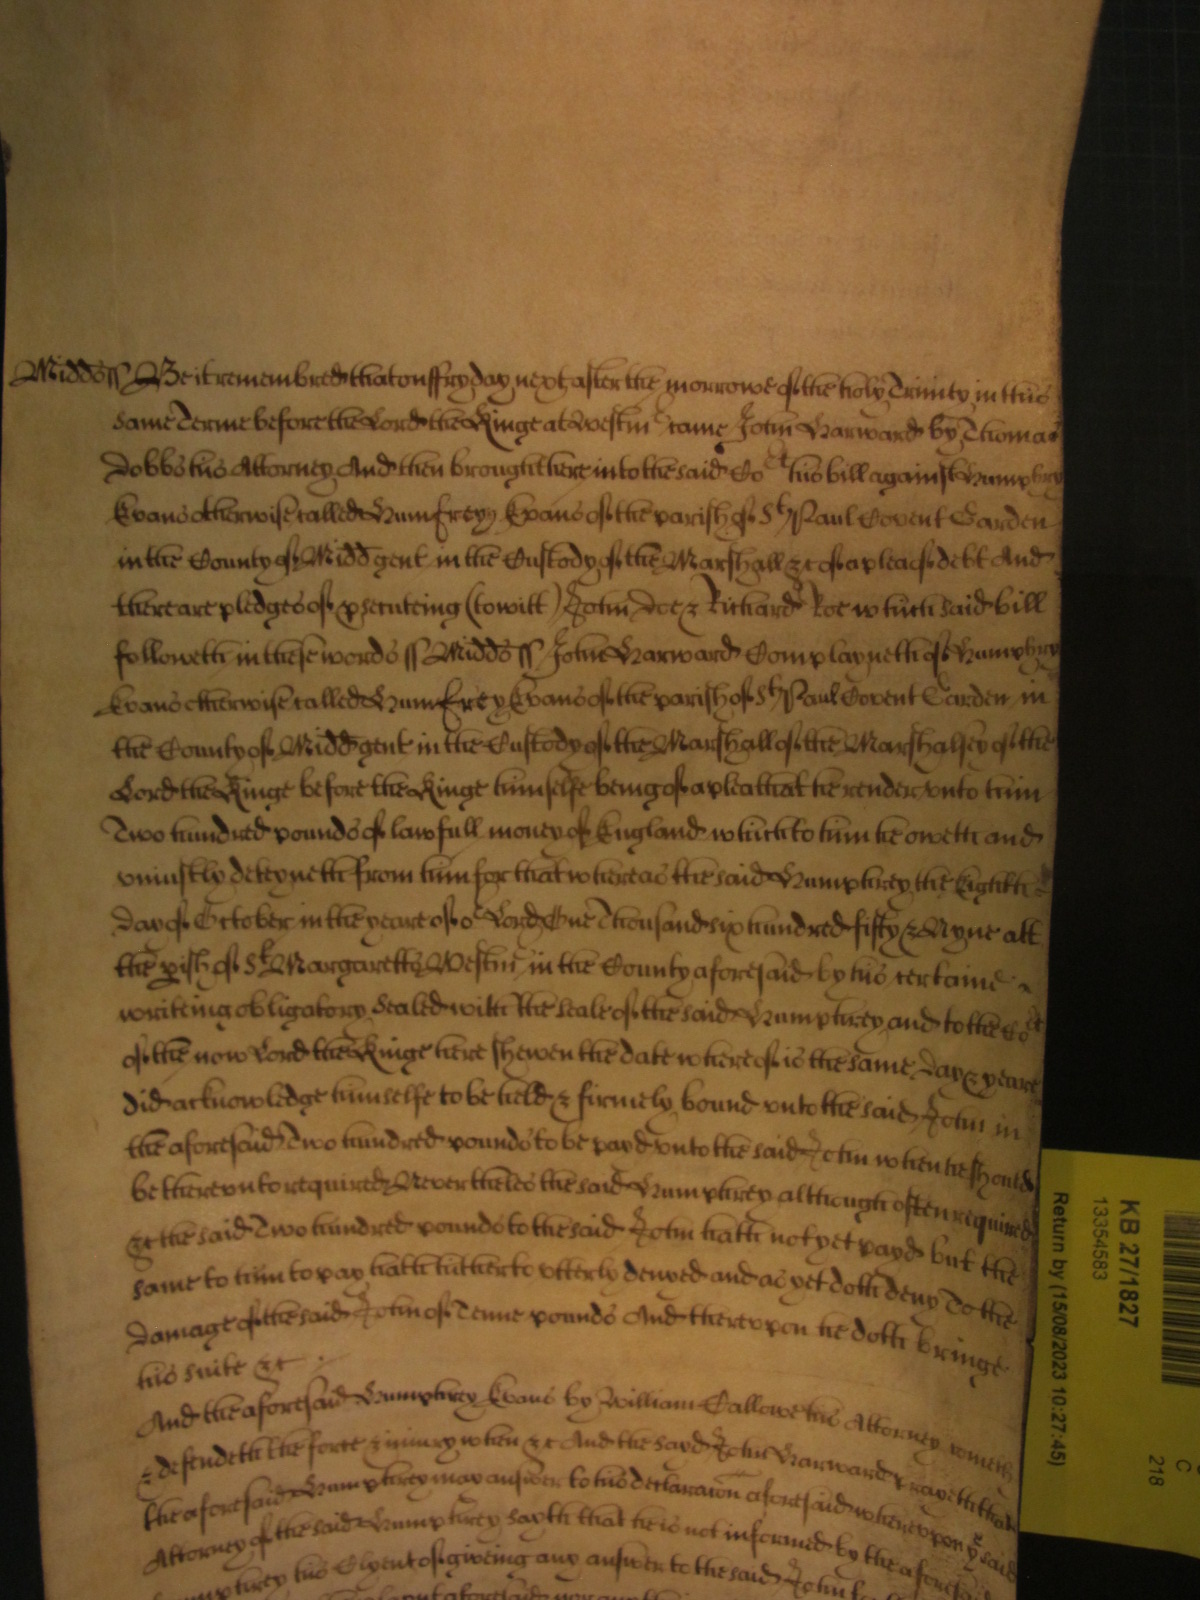 Midds ss Be it remembred that on ffryday next after the morrowe of the holy Trinity in this
same Terme before the Lord the Kinge at Westm came John Harward by Thomas
Dobbs his Attorney And then brought here into the said Cort his bill against Humphrey
Evans otherwise called Humfrey Evans of the parish of St Paul Covent Garden
in the County of Midd gent in the Custody of the Marshall &c of a plea of debt And
there are pledges of psecuteing (to witt) John Doe & Richard Roe which said bill
followeth in these words ss Midds ss John Harward Complayneth of Humphrey
Evans otherwise called Humfrey Evans of the parish of St Paul Covent Garden in
the County of Midd gent in the Custody of the Marshall of the Marshalsey of the
Lord the Kinge before the Kinge himselfe being of a plea that he render vnto him
Two hundred pounds of lawfull money of England which to him he oweth and
vniustly deteyneth from him for that whereas the said Humphrey the Eighth
day of October in the yeare of or Lord One Thousand six hundred fifty & Nyne att
the pish of St Margaretts Westmr in the County aforesaid by his certaine
writeing obligatory Sealed with the Seale of the said Humphrey and to the Cort
of the now Lord the Kinge here shewen the date whereof is the same day & yeare
did acknowledge himselfe to be held & firmely bound vnto the said John in
the aforesaid Two hundred pounds to be payd vnto the said John when he should
be therevnto required Neverthelés the said Humphrey although often required
&c the said Two hundred pounds to the said John hath not yet payd but the
same to him to pay hath hitherto vtterly denyed and as yet doth deny To the
damage of the said John of Tenne pounds And therevpon he doth bringe
his suite &c
And the aforesaid Humphrey Evans by William Gallowe his Attorney cometh
& defendeth the force & iniury when &c And the sayd John Harward prayeth that
the aforesaid Humphrey may answer to his declaracon aforesaid wherevpon ye said
Attorney of the said Humphrey sayth that he is not informed by the aforesaid
Humphrey his Clyent of giveing any answer to the said John
KB 27/1827
13354583
Return by (15/08/2023 10:27:45)
C
218